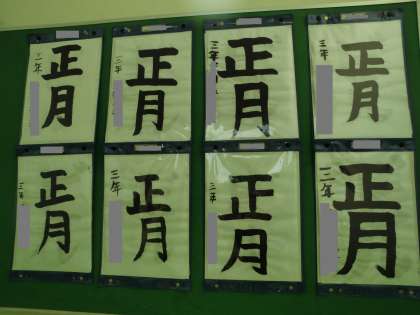 正月
三年
正月
三年
正月
三年
正月
三年
正月
三年
正月
三年
正月
三年
正月
三年